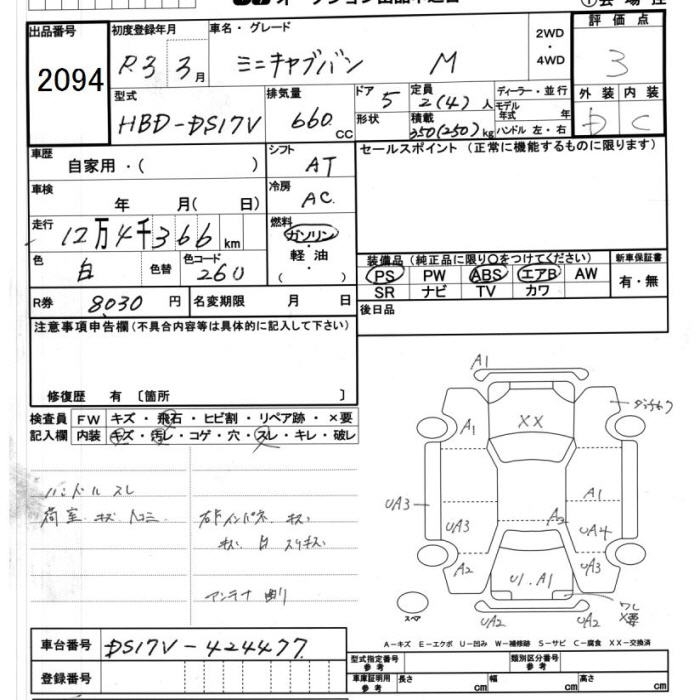 出品番号
2094
初度登録年月
R3 3月
車名・グレード
ミニキャブバン M
2WD
・
4WD
評価点
3
外装 内装
D C
型式
HBD-DS17V
排気量
660 CC
ドア
5
形状
定員
2(4)人
積載
350(250)kg
ディーラー・並行
モデル
年式 年
ハンドル 左・右
車歴
自家用・( )
車検
年 月( 日)
走行
12万4千366 km
色
白
色替
色コード
260
シフト
AT
冷房
AC
燃料
ガソリン
・
軽油
・
( )
セールスポイント(正常に機能するものに限ります)
装備品(純正品に限り○をつけてください)
PS PW ABS エアB AW
SR ナビ TV カワ
新車保証書
有・無
R券 8030 円
名変期限 月 日
後日品
注意事項申告欄(不具合内容等は具体的に記入して下さい)
修復歴 有 〔箇所 〕
検査員
記入欄
FW キズ・飛石・ヒビ割・リペア跡・×要
内装 キズ・汚レ・コゲ・穴・スレ・キレ・破レ
ハンドル スレ
荷室 キズ 凹コミ
アンテナ 曲り
A1
A1
XX
UA3
UA3
A1
A2
UA4
A2
UA3
U1.A1
UA2
UA2
ワレ
X要
スペア
A-キズ E-エクボ U-凹み W-補修跡 S-サビ C-腐食 XX-交換済
車台番号 DS17V-424477
登録番号
型式指定番号
参考
類別区分番号
参考
車庫証明用
参考
長さ cm
幅 cm
高さ cm